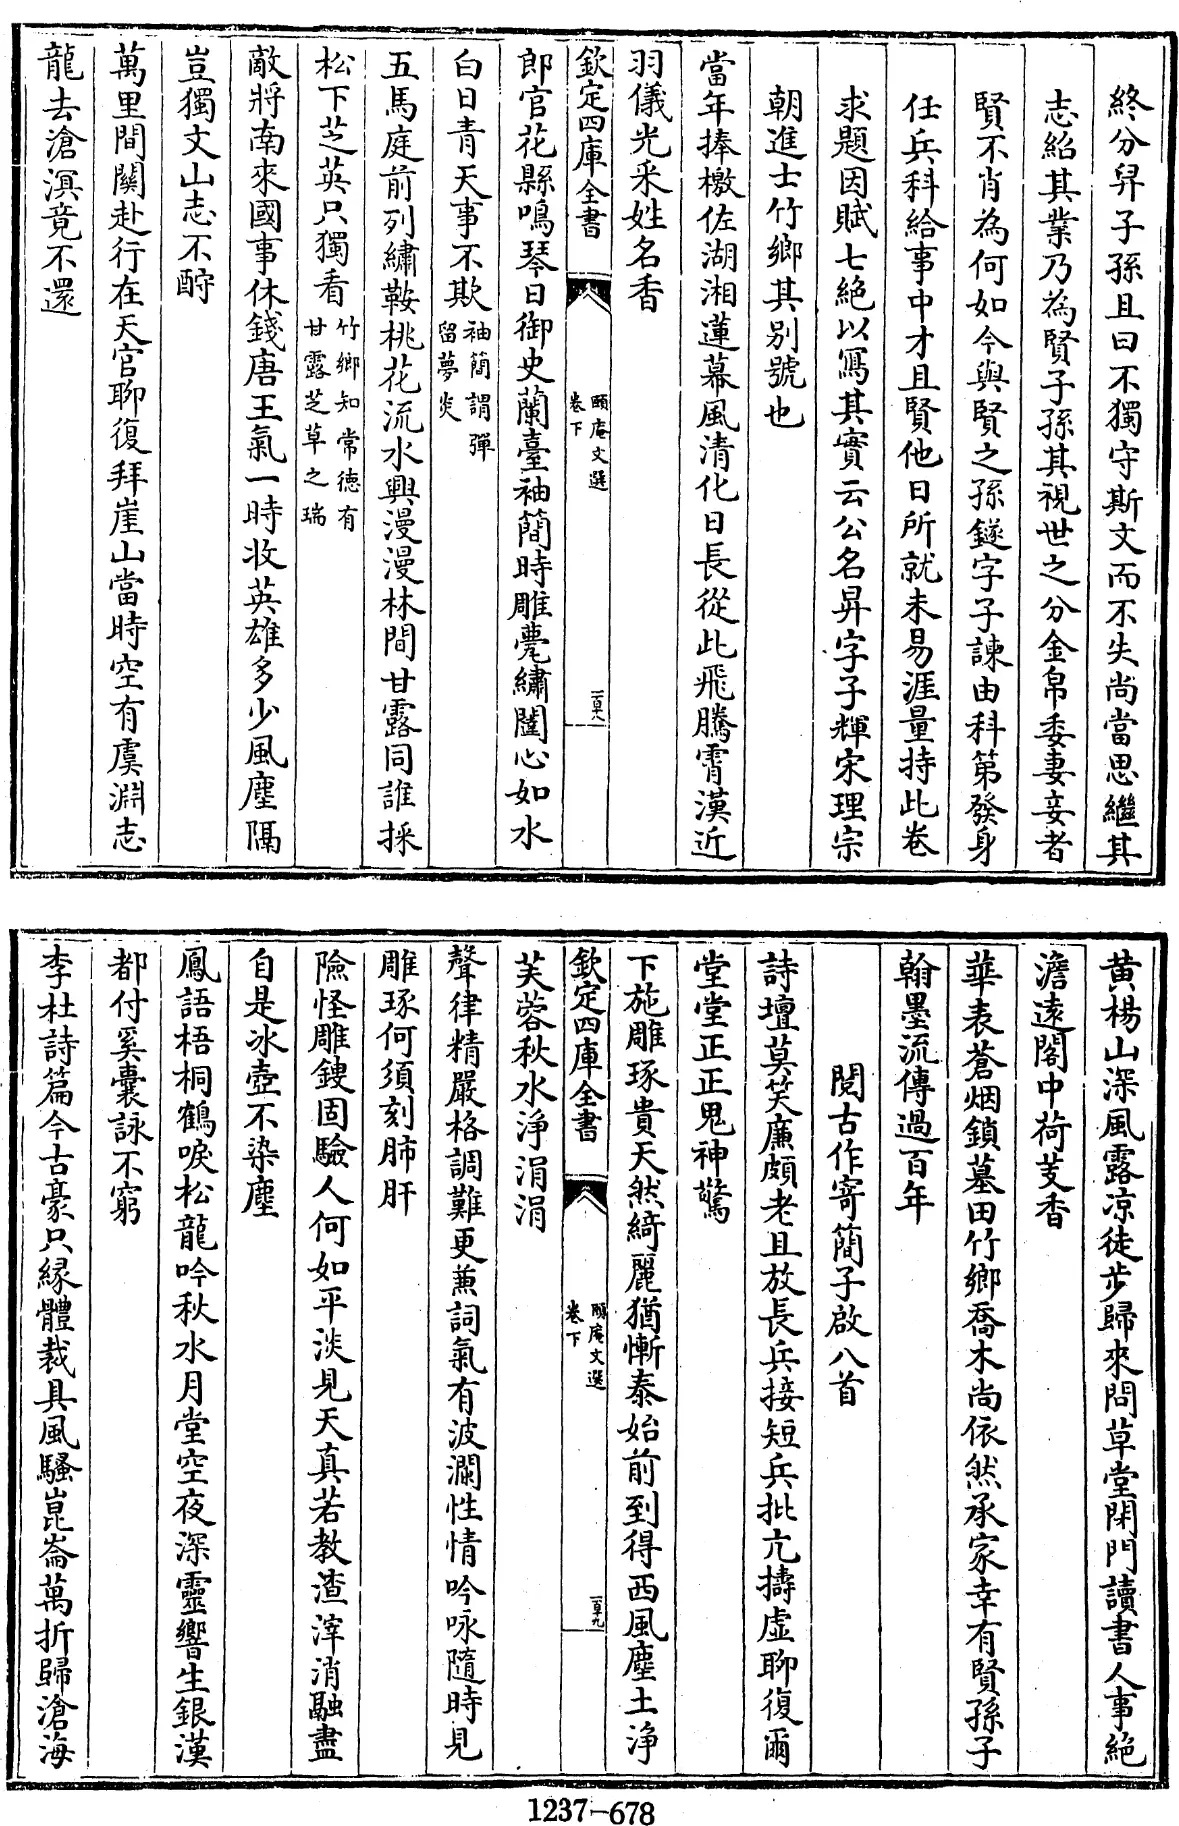 終分舁子孫且曰不獨守斯文而不失尚當思繼其
志紹其業乃為賢子孫其視世之分金帛委妻妾者
賢不肖為何如今與賢之孫鐩字子諫由科第發身
任兵科給事中才且賢他日所就未易涯量持此卷
求題因賦七絶以寫其實云公名昇字子輝宋理宗
朝進士竹鄉其别號也
當年捧檄佐湖湘蓮幕風清化日長從此飛騰霄漢近
羽儀光采姓名香
欽定四庫全書
頤庵文選
卷下
一百十八
郎官花縣鳴琴日御史蘭臺袖簡時雕甍繡闥心如水
白日青天事不欺袖簡謂彈
留夢炎
五馬庭前列繡鞍桃花流水興漫漫林間甘露同誰採
松下芝英只獨看竹鄉知常德有
甘露芝草之瑞
敵將南來國事休錢唐王氣一時收英雄多少風塵隔
豈獨文山志不酧
萬里間關赴行在天官聊復拜崖山當時空有虞淵志
龍去滄溟竟不還
黄楊山深風露凉徒步歸來問草堂閉門讀書人事絶
澹遠閣中荷芰香
華表蒼烟鎖墓田竹鄉喬木尚依然承家幸有賢孫子
翰墨流傳過百年
閱古作寄簡子啟八首
詩壇莫笑廉頗老且放長兵接短兵批亢擣虚聊復爾
堂堂正正鬼神驚
下施雕琢貴天然綺麗猶慚泰始前到得西風塵土浄
芙蓉秋水淨涓涓
欽定四庫全書
頤庵文選
卷下
一百十九
聲律精嚴格調難更兼詞氣有波瀾性情吟咏隨時見
雕琢何須刻肺肝
險怪雕鎪固驗人何如平淡見天真若教渣滓消融盡
自是冰壺不染塵
鳳語梧桐鶴唳松龍吟秋水月堂空夜深靈響生銀漢
都付奚囊詠不窮
李杜詩篇今古豪只緣體裁具風騷崑崙萬折歸滄海
1237-678